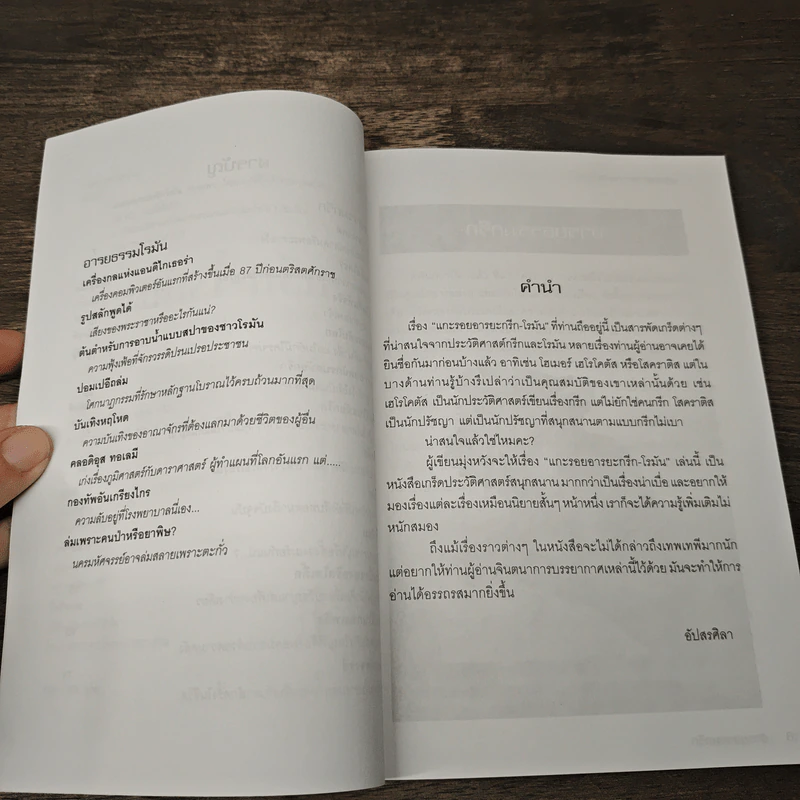 อารยธรรมโรมัน
เครื่องกลแห่งแอนติไกเธอร่า
เครื่องคอมพิวเตอร์อันแรกที่สร้างขึ้นเมื่อ 87 ปีก่อนคริสตศักราช
รูปสลักพูดได้
เสียงของพระราชาหรืออะไรกันแน่?
ต้นตำหรับการอาบน้ำแบบสปาของชาวโรมัน
ความฟุ้งเฟ้อที่จักรวรรดิปรนเปรอประชาชน
ปอมเปอีถล่ม
โศกนาฏกรรมที่รักษาหลักฐานโบราณไว้ครบถ้วนมากที่สุด
บันเทิงหฤโหด
ความบันเทิงของอาณาจักรที่ต้องแลกมาด้วยชีวิตของผู้อื่น
คลอดิอุส ทอเลมี
เก่งเรื่องภูมิศาสตร์กับดาราศาสตร์ ผู้ทำแผนที่โลกอันแรก แต่.....
กองทัพอันเกรียงไกร
ความลับอยู่ที่โรงพยาบาลนี่เอง...
ล่มเพราะคนป่าหรือยาพิษ?
นครมหัศจรรย์อาจล่มสลายเพราะตะกั่ว
คำนำ
เรื่อง "แกะรอยอารยะกรีก-โรมัน" ที่ท่านถืออยู่นี้ เป็นสารพัดเกร็ดต่างๆ
ที่น่าสนใจจากประวัติศาสตร์กรีกและโรมัน หลายเรื่องท่านผู้อ่านอาจเคยได้
ยินชื่อกันมาก่อนบ้างแล้ว อาทิเช่น โฮเมอร์ เฮโรโคตัส หรือโสคราติส แต่ใน
บางด้านท่านรู้บ้างรึเปล่าว่าเป็นคุณสมบัติของเขาเหล่านั้นด้วย เช่น
เฮโรโคตัส เป็นนักประวัติศาสตร์เขียนเรื่องกรีก แต่ไม่ยักใช่คนกรีก โสคราติส
เป็นนักปรัชญา แต่เป็นนักปรัชญาที่สนุกสนานตามแบบกรีกไม่เบา
น่าสนใจแล้วใช่ไหมคะ?
ผู้เขียนมุ่งหวังจะให้เรื่อง "แกะรอยอารยะกรีก-โรมัน" เล่มนี้ เป็น
หนังสือเกร็ดประวัติศาสตร์สนุกสนาน มากกว่าเป็นเรื่องน่าเบื่อ และอยากให้
มองเรื่องแต่ละเรื่องเหมือนนิยายสั้นๆ หน้าหนึ่ง เราก็จะได้ความรู้เพิ่มเติมไม่
หนักสมอง
ถึงแม้เรื่องราวต่างๆ ในหนังสือจะไม่ได้กล่าวถึงเทพเทพีมากนัก
แต่อยากให้ท่านผู้อ่านจินตนาการบรรยากาศเหล่านี้ไว้ด้วย มันจะทำให้การ
อ่านได้อรรถรสมากยิ่งขึ้น
อัปสรศิลา